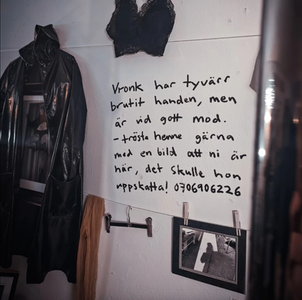 Vronk har tyvärr
brutit handen, men
är vid gott mod.
- trösta henne gärna
med en bild att ni är
här, det skulle hon
uppskatta! 0706906226